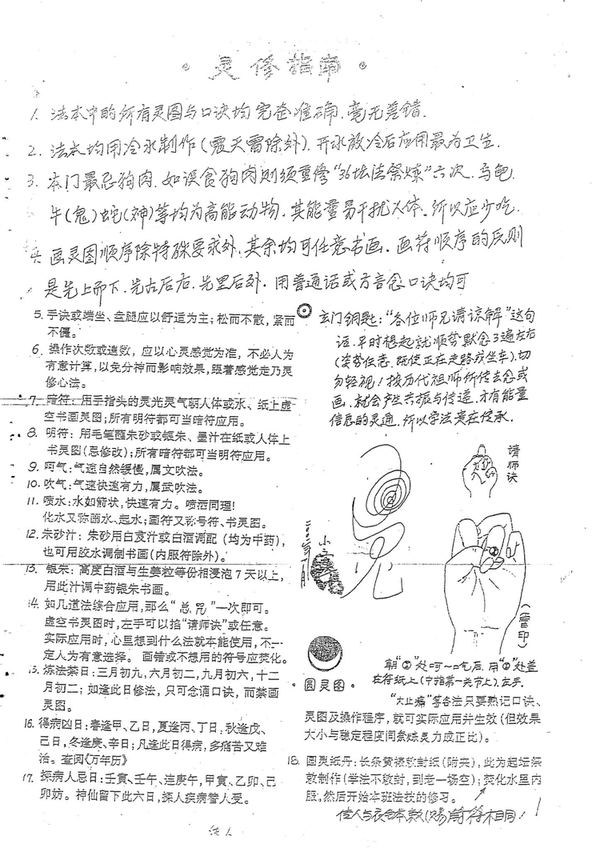 灵修指南
1. 法本中的所有灵图与口诀均完整准确.毫无差错.
2. 法本均用冷水制作(震天雷除外).开水放冷后应用最为卫生.
3. 本门最忌狗肉.如误食狗肉则须重修"36坛法祭炼"六次.乌龟.
牛(鬼)蛇(神)等均为高能动物.其能量易干扰人体.所以应少吃.
4. 画灵图顺序除特殊要求外.其余均可任意书画.画符顺序的原则
是先上而下.先左后右.先里后外.用普通话或方言念口诀均可
5. 手诀或端坐、盘腿应以舒适为主；松而不散，紧而
不僵。
6. 操作次数或遍数，应以心灵感觉为准，不必人为
有意计算，以免分神而影响效果，跟着感觉走乃灵
修心法。
7. 暗符：用手指头的灵光灵气朝人体或水、纸上虚
空书画灵图；所有明符都可当暗符应用。
8. 明符：用毛笔蘸朱砂或银朱、墨汁在纸或人体上
书灵图(忌修改)；所有暗符都可当明符应用。
9. 呵气：气速自然缓慢，属文吹法。
10. 吹气：气速快速有力，属武吹法。
11. 喷水：水如箭状，快速有力。喷洒同理！
化水又称画水、起水；画符又称号符、书灵图。
12. 朱砂汁：朱砂用白芨汁或白酒调配（均为中药），
也可用胶水调制书画(内服符除外)。
13. 银朱：高度白酒与生姜粒等份相浸泡7天以上，
用此汁调中药银朱书画。
14. 如几道法综合应用，那么"总咒"一次即可。
虚空书灵图时，左手可以掐"请师诀"或任意。
实际应用时，心里想到什么法就车能使用，不一
定人为有意选择。 画错或不想用的符号应焚化。
15. 炼法禁日：三月初九、六月初二、九月初六、十二
月初二；如逢此日修法，只可念诵口诀，而禁画
灵图。
16. 得病凶日：春逢甲、乙日，夏逢丙、丁日，秋逢戊、
己日，冬逢庚、辛日；凡逢此日得病，多痛苦又难
治。查阅《万年历》
17. 探病人忌日：壬寅、壬午、连庚午，甲寅、乙卯、己
卯妨。神仙留下此六日，探人疾病替人受。
玄门钥匙："各位师兄请谅解"这句
话.平时想起就顺势默念3遍左右
(姿势任意.既使正在走路或坐车).切
勿轻视！按历代祖师所传去念或
画.就会产生共振与传递.才有能量
信息的灵通.所以学法贵在传承.
请师诀
(雷印)
圆灵图。
朝"②"处呵一口气后.用"②"处盖
在符纸上(中指第一关节上).左手.
"大止痛"等各法只要熟记口诀、
灵图及操作程序，就可实际应用并生效(但效果
大小与稳定程度间素炼灵力成正比)。
18. 圆灵纸丹：长条黄裱敕封纸(附夹)，此为起坛祭
敕制作(学法不敕封，到老一场空)；焚化水里内
服，然后开始本班法技的修习。
1